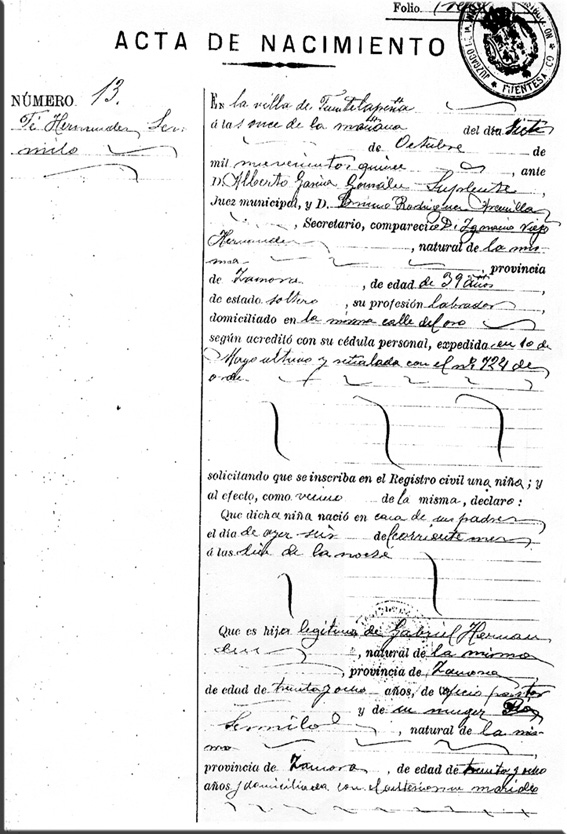 Folio
ACTA DE NACIMIENTO
NÚMERO 13.
Fé Hernandez Ser
milo
En la villa de Fuentelapeña
á las once de la mañana del día siete
de Octubre de
mil novecientos quince, ante
D. Alberto García González Suplente
Juez municipal, y D. Rodriguez
, Secretario, compareció D. Ignacio Viejo
Hernandez, natural de la mis-
ma, provincia
de Zamora, de edad de 39 años,
de estado soltero, su profesión labrador
domiciliado en la misma calle del oro
según acreditó con su cédula personal, expedida en 10 de
Mayo ultimo y señalada con el nº 724 de
orden
solicitando que se inscriba en el Registro civil una niña; y
al efecto, como vecino de la misma, declaro:
Que dicha niña nació en casa de sus padres
el día de ayer seis del corriente mes
á las diez de la noche
Que es hija legitima de Gabriel Hernan
dez, natural de la misma
, provincia de Zamora,
de edad de treinta y ocho años, de oficio pastor
y de su muger
Sermilo, natural de la mis-
ma
provincia de Zamora, de edad de treinta y ocho
años y domiciliada con el anterior su marido